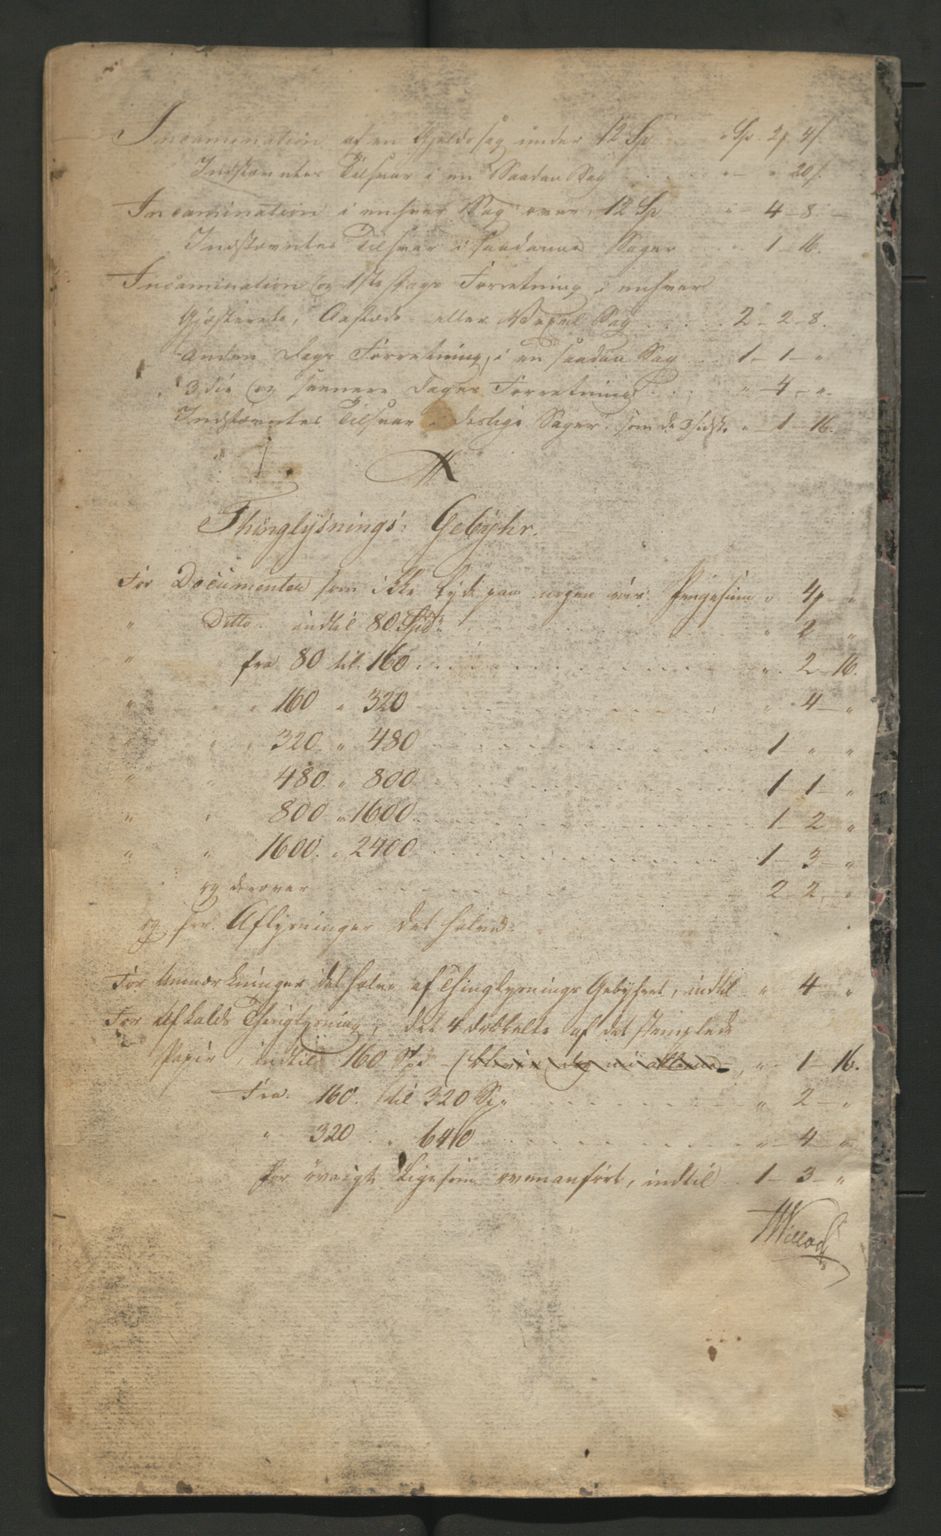 Incamination af en Gjeldssag under 12 Sp " Sp 2 4
Indstævntes Tilsvar i en Saadan Sag " " 20
Incamination i enhver Sag over 12 Sp " 4 - 8
Indstævntes Tilsvar i saadanne Sager " 1 - 16.
Incamination og 1ste Dags Forretning i enhver
Gjæsterets, Aasteds eller Sag 2 - 2 - 8.
Anden Dags Forretning, i en saadan Sag 1 - 1 - "
3die og senere Dages Forretning " - 4 - "
Indstævntes Tilsvar i deslige Sager, som de sidst. " - 1 - 16.
Thinglysnings Gebyhr.
For Documenter som ikke lyde paa nogen vis Pengesum " 4 "
" Ditto indtil 80 Spd " 2 "
" " fra 80 til 160 " 2 - 16.
" " " 160 " 320 " 4 - "
" " 320 " 480 1 " "
" " 480 " 800 1 - 1 - "
" " 800 " 1600 1 - 2 - "
" " 1600 " 2400 1 - 3 - "
og derover 2 - 2 - "
og for Aflysninger det halve
For Anmærkninger det halve af Thinglysnings Gebyhret, indtil " 4 - "
For Afkalds Thinglysning, det 4 dobbelte af det stemplede
Papir, indtil 160 Sp " 1 - 16.
Fra 160 til 320 Sp " 2 - "
" 320 " 640 " 4 - "
for øvrigt ligesom ovenanført, indtil 1 - 3 - "